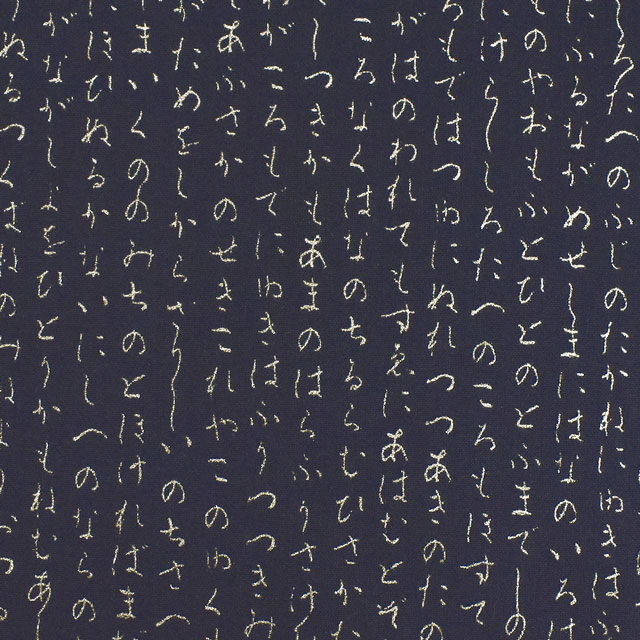 しろたへのふじのたかねにゆきは
ふるながめせしまにはなのいろは
のやおもふとひとのとふまでしの
けらししろたへのころもほすて
ろもではつゆにぬれつつあきのた
がはのわれてもすゑにあはむとぞ
ころなくはなのちるらむひさか
しつきかもあまのはらふりさけ
がころもでにゆきはふりつつきみ
あふさかのせきこれやこのゆく
がためをしからざりしいのちさへ
まいくののみちのとほければま
ほひぬるかないにしへのならの
ながながしよをひとりかもねむあし